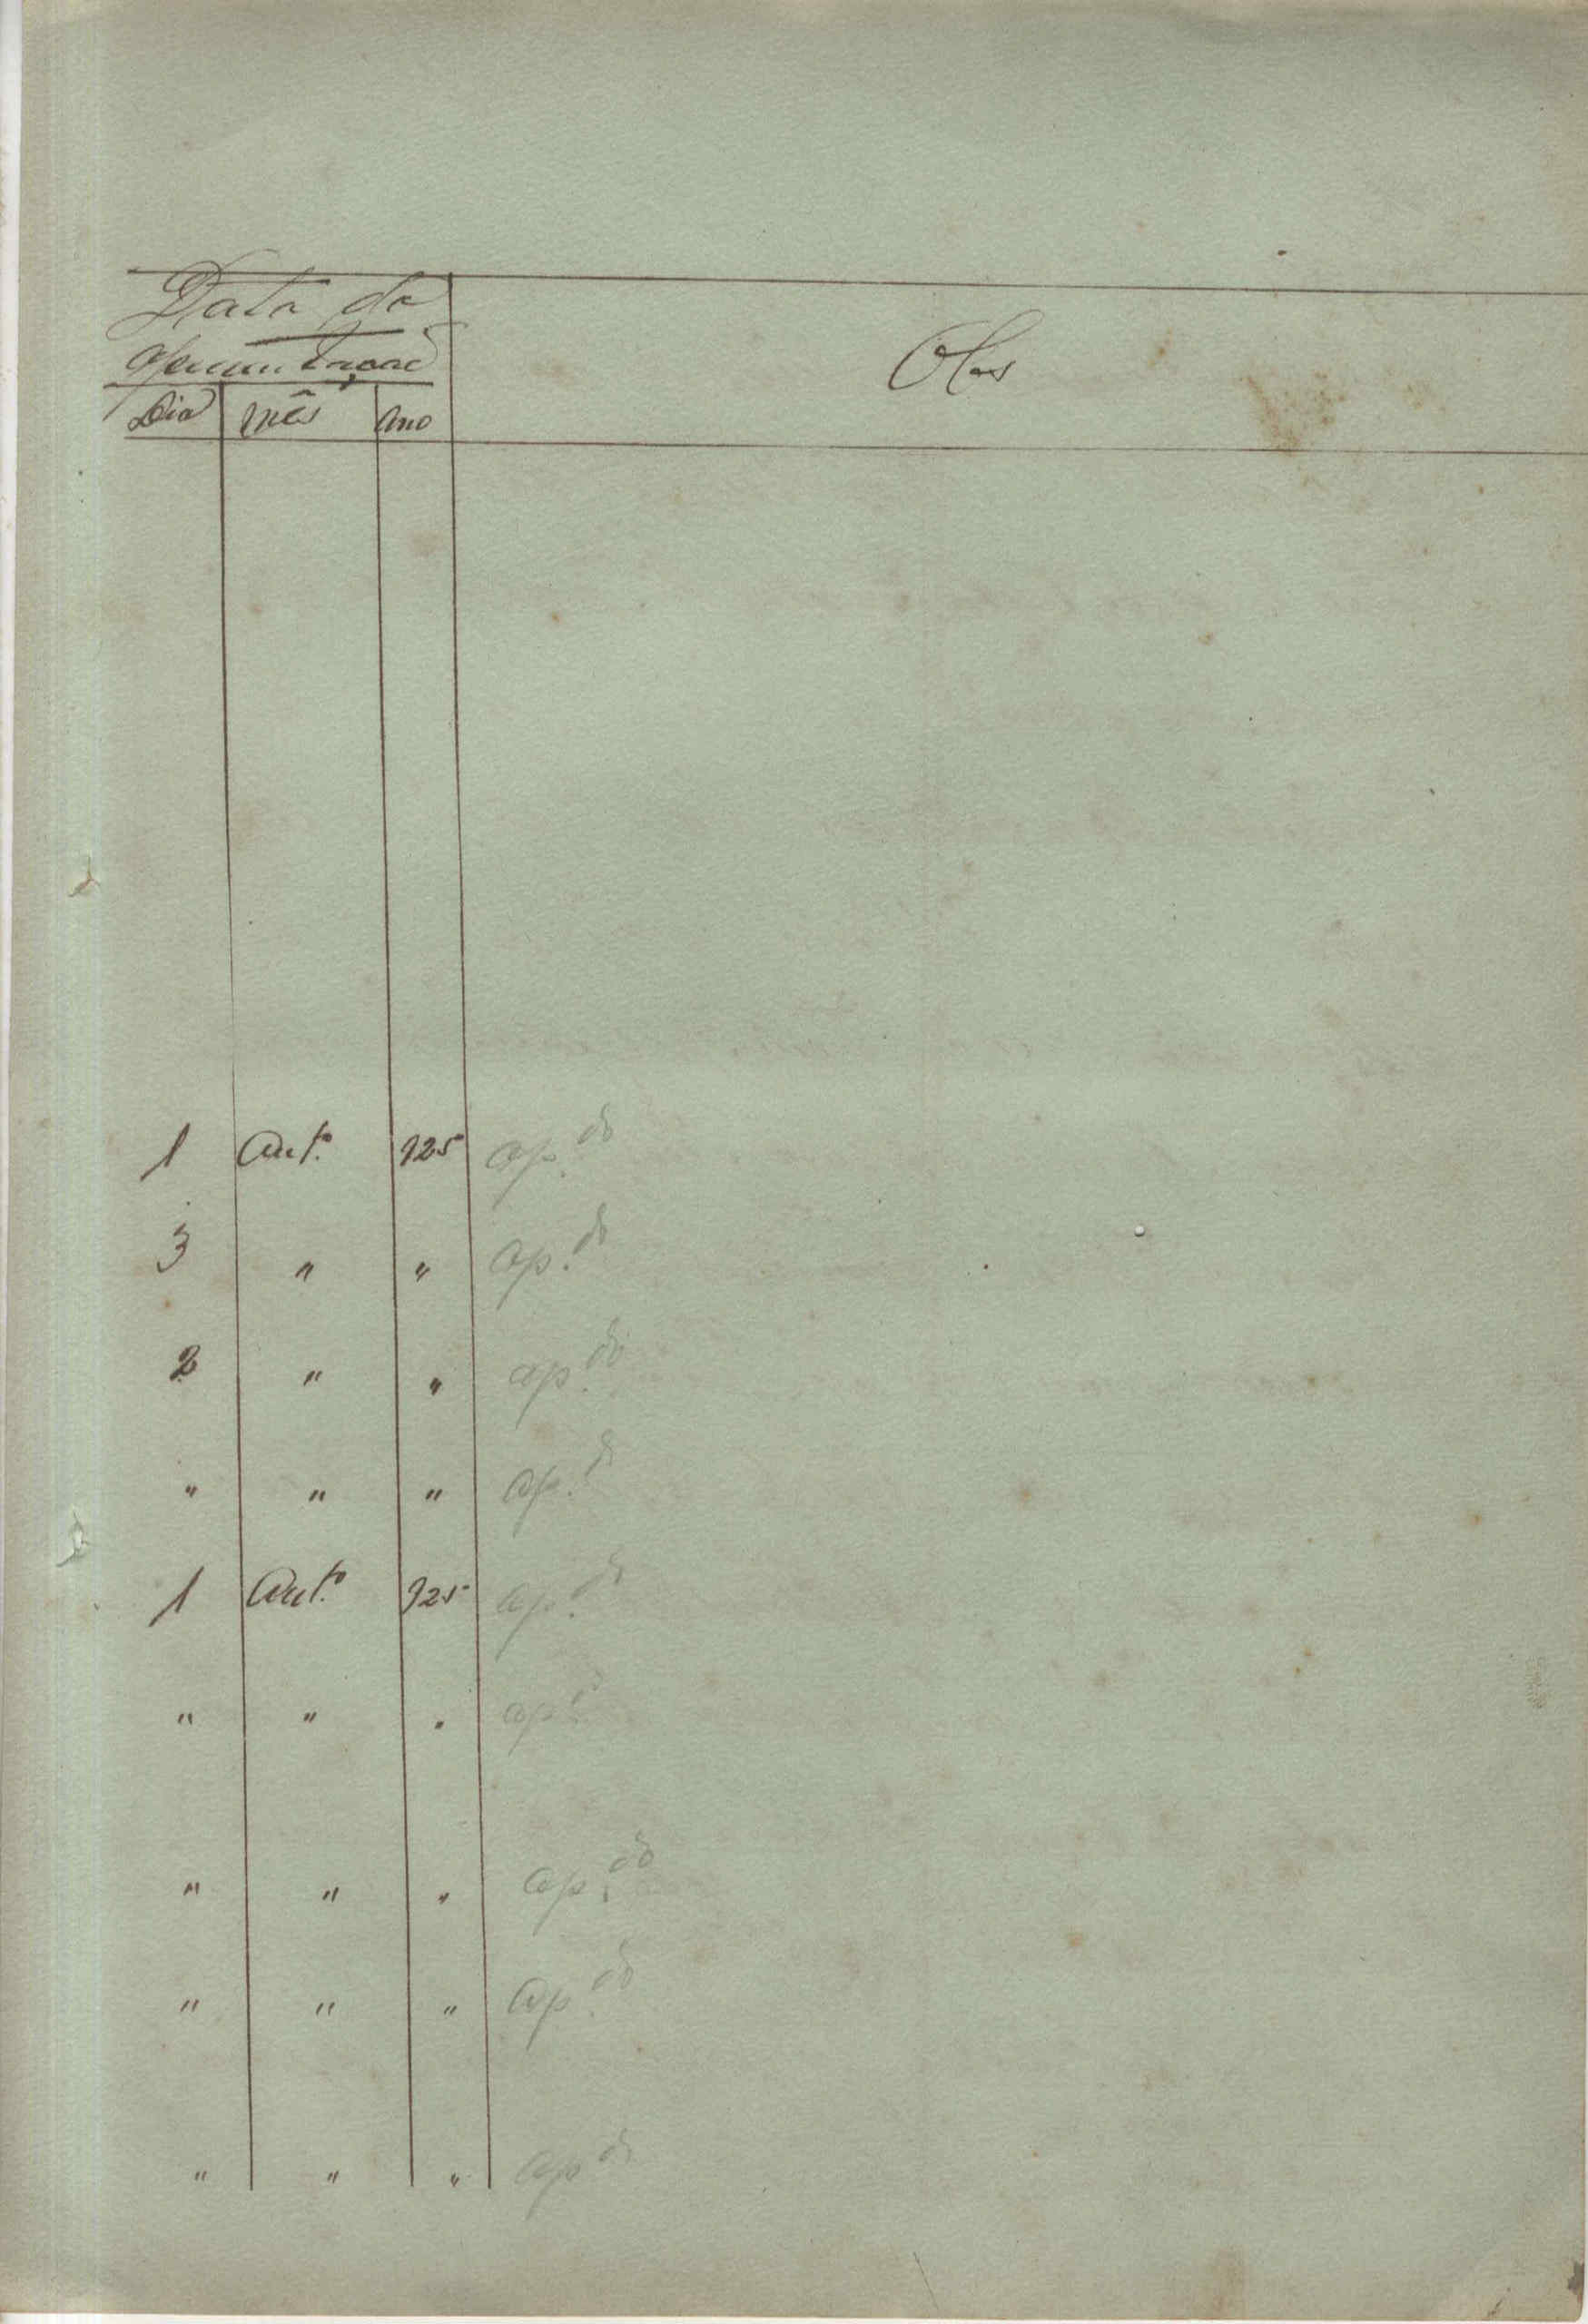 Data da
apresentação
Dia mês ano
Obs
1 Out.º 925 ap.do
3 " " ap.do
2 " " ap.do
" " " ap.do
1 Out.º 925 ap.do
" " " ap.do
" " " ap.do
" " " ap.do
" " " ap.do